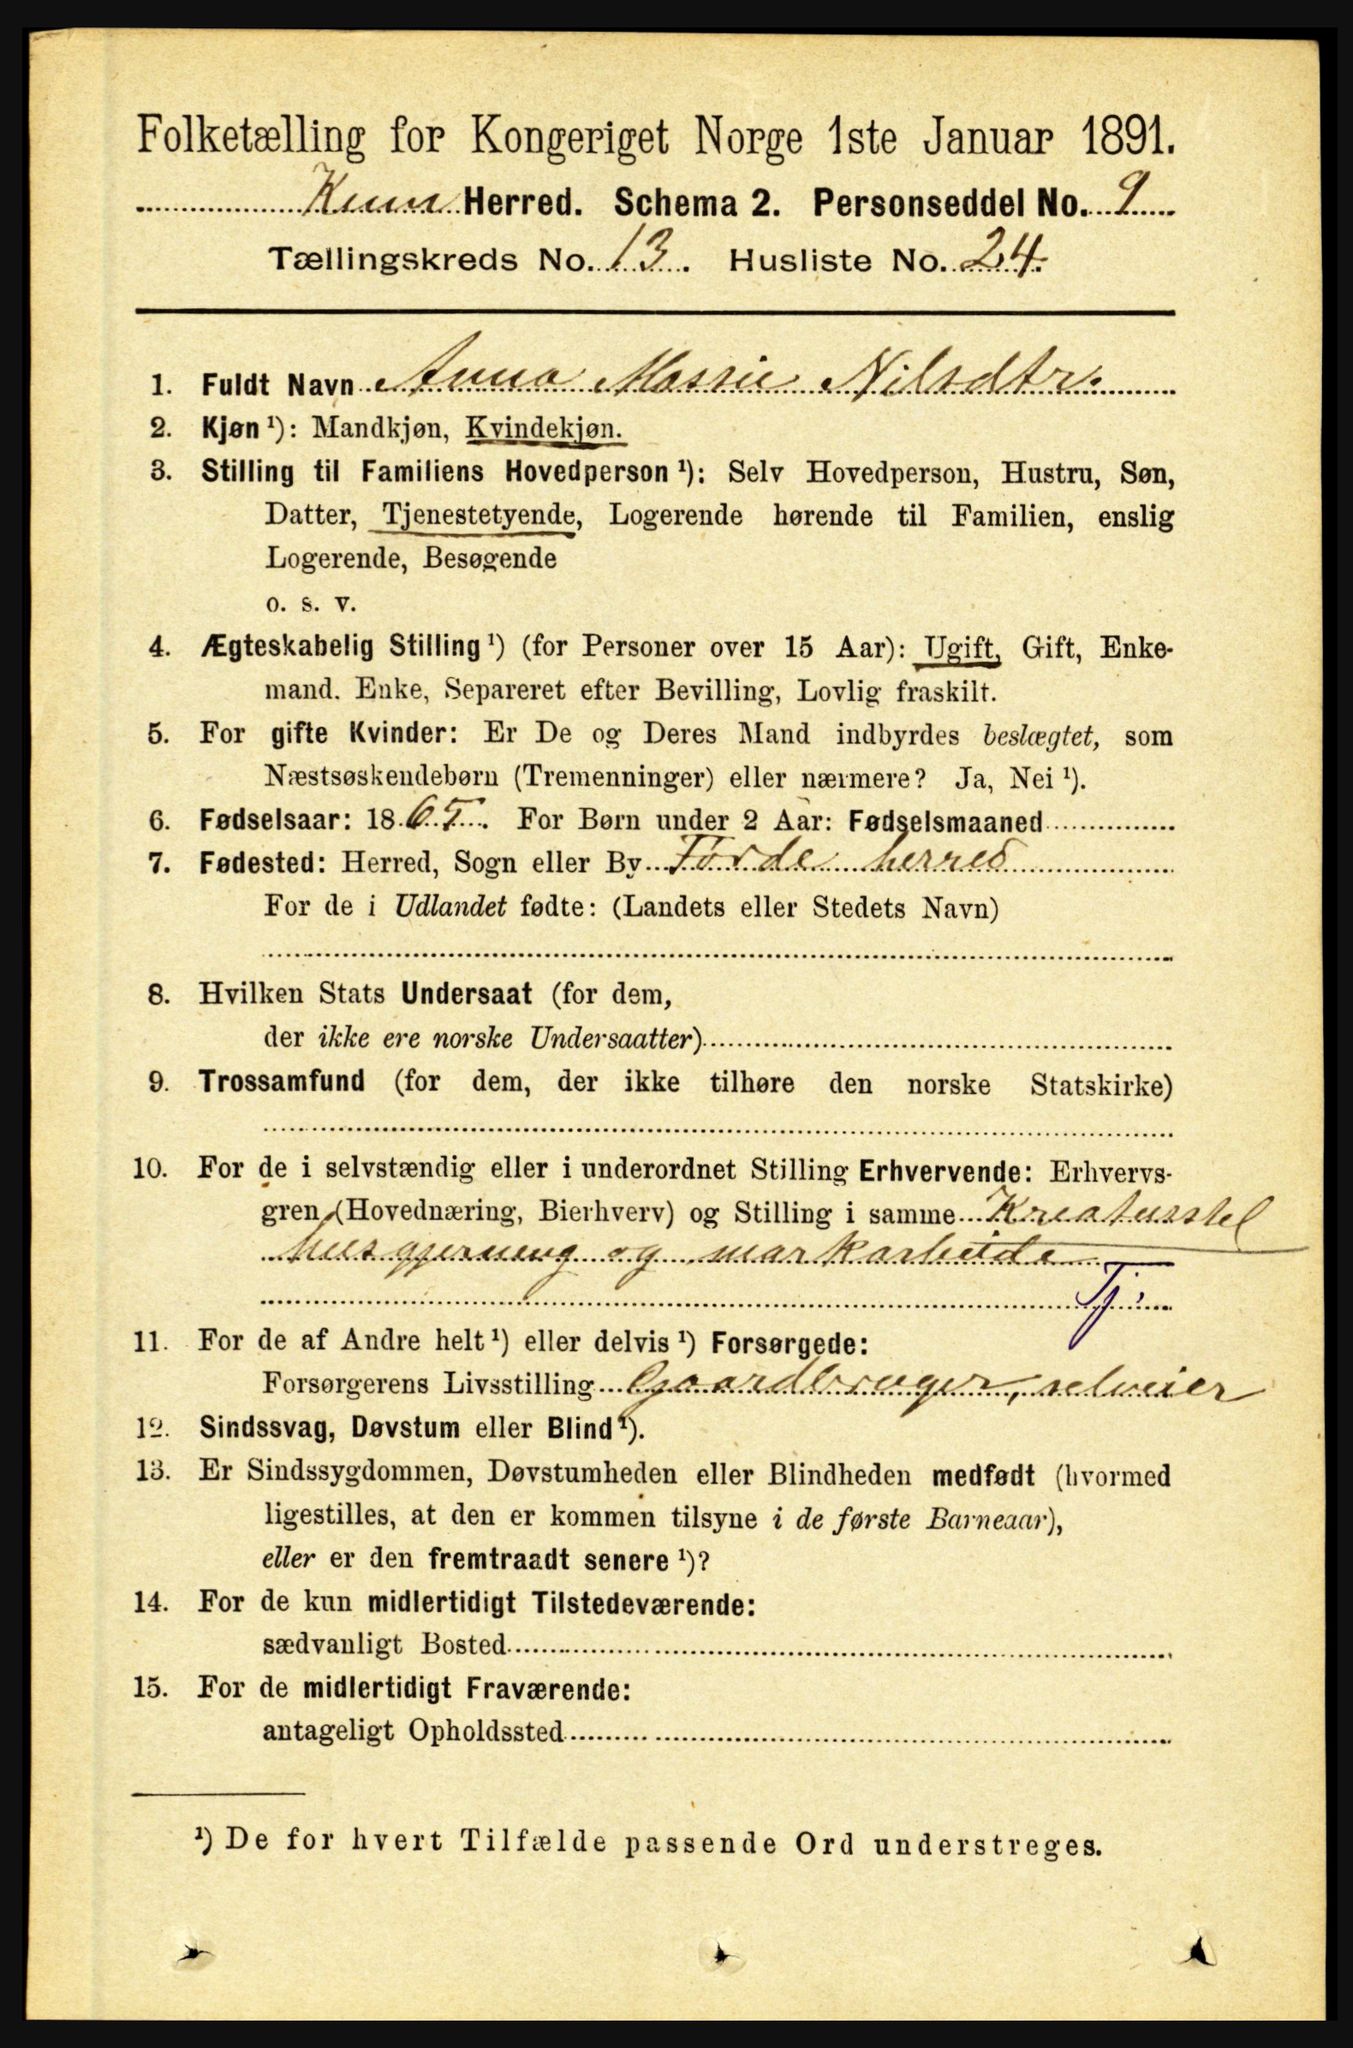 Folketælling for Kongeriget Norge 1ste Januar 1891.
Kinn Herred. Schema 2. Personseddel No. 9
Tællingskreds No. 13. Husliste No. 24.
1. Fuldt Navn Anna Massie Nilsdtr.
2. Kjøn ¹): Mandkjøn, Kvindekjøn.
3. Stilling til Familiens Hovedperson ¹): Selv Hovedperson, Hustru, Søn,
Datter, Tjenestetyende, Logerende hørende til Familien, enslig
Logerende, Besøgende
o. s. v.
4. Ægteskabelig Stilling ¹) (for Personer over 15 Aar): Ugift, Gift, Enke-
mand. Enke, Separeret efter Bevilling, Lovlig fraskilt.
5. For gifte Kvinder: Er De og Deres Mand indbyrdes beslægtet, som
Næstsøskendebørn (Tremenninger) eller nærmere? Ja, Nei ¹).
6. Fødselsaar: 1865. For Børn under 2 Aar: Fødselsmaaned
7. Fødested: Herred, Sogn eller By Førde herred
For de i Udlandet fødte: (Landets eller Stedets Navn)
8. Hvilken Stats Undersaat (for dem,
der ikke ere norske Undersaatter)
9. Trossamfund (for dem, der ikke tilhøre den norske Statskirke)
10. For de i selvstændig eller i underordnet Stilling Erhvervende: Erhvervs-
gren (Hovednæring, Bierhverv) og Stilling i samme Kreaturstel
husgjerning og markarbeide
Tj.
11. For de af Andre helt ¹) eller delvis ¹) Forsørgede:
Forsørgerens Livsstilling Gaardbruger, selveier
12. Sindssvag, Døvstum eller Blind ¹).
13. Er Sindssygdommen, Døvstumheden eller Blindheden medfødt (hvormed
ligestilles, at den er kommen tilsyne i de første Barneaar),
eller er den fremtraadt senere ¹)?
14. For de kun midlertidigt Tilstedeværende:
sædvanligt Bosted
15. For de midlertidigt Fraværende:
antageligt Opholdssted
¹) De for hvert Tilfælde passende Ord understreges.